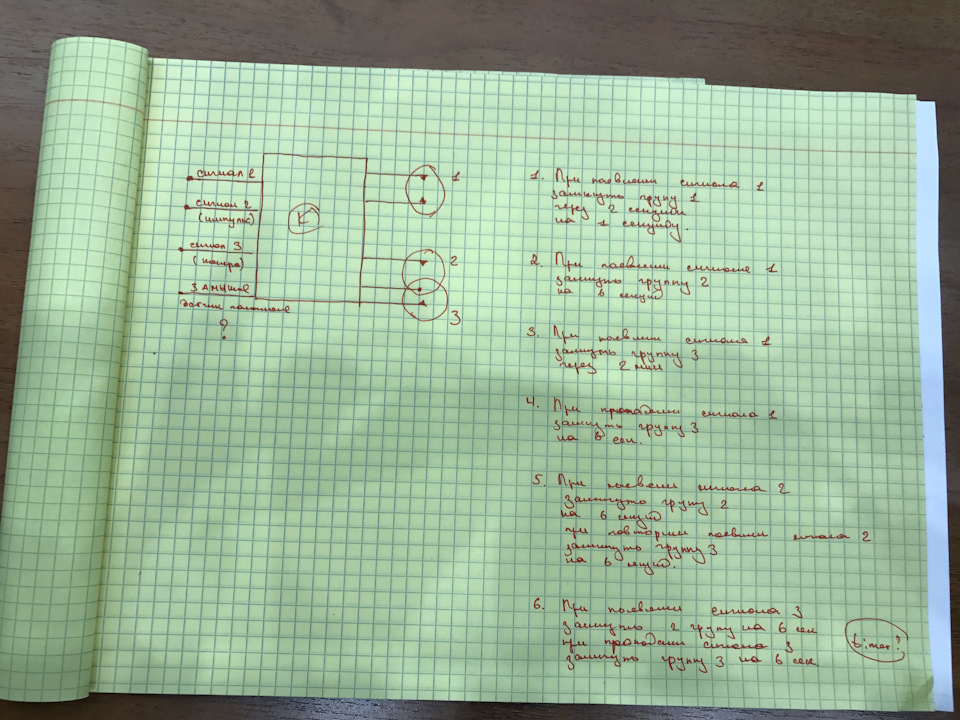 сигнал 1
сигнал 2
(импульс)
сигнал 3
(номро)
замыкание
датчик положения
?
К
1
2
3
1. При появлении сигнала 1
замкнуть групу 1
через 2 секунды
на 1 секунду.
2. При появлении сигнала 1
замкнуть группу 2
на 6 секунд
3. При появлении сигнала 1
замкнуть группу 3
через 2 мин
4. При пропадании сигнала 1
замкнуть группу 3
на 6 сек.
5. При появлении сигнала 2
замкнуто групу 2
на 6 секунд
при повторном появлении сигнала 2
замкнуто группу 3
на 6 секунд.
6. При появлении сигнала 3
замкнуто 2 групу на 6 сек
при пропадании сигнала 3
замкнуть группу 3 на 6 сек
timer?